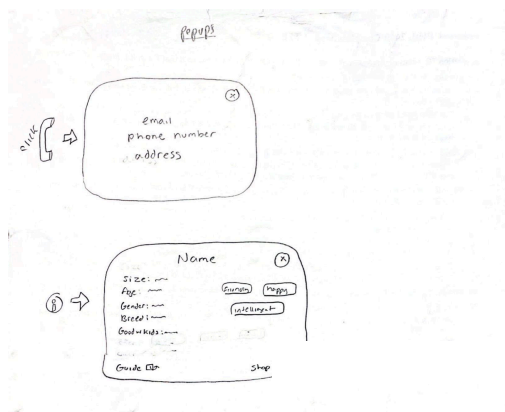 popups
click
email
phone number
address
Name
Size:
Age:
Gender:
Breed:
Good w kids:
friendly
happy
intelligent
Guide
Shop